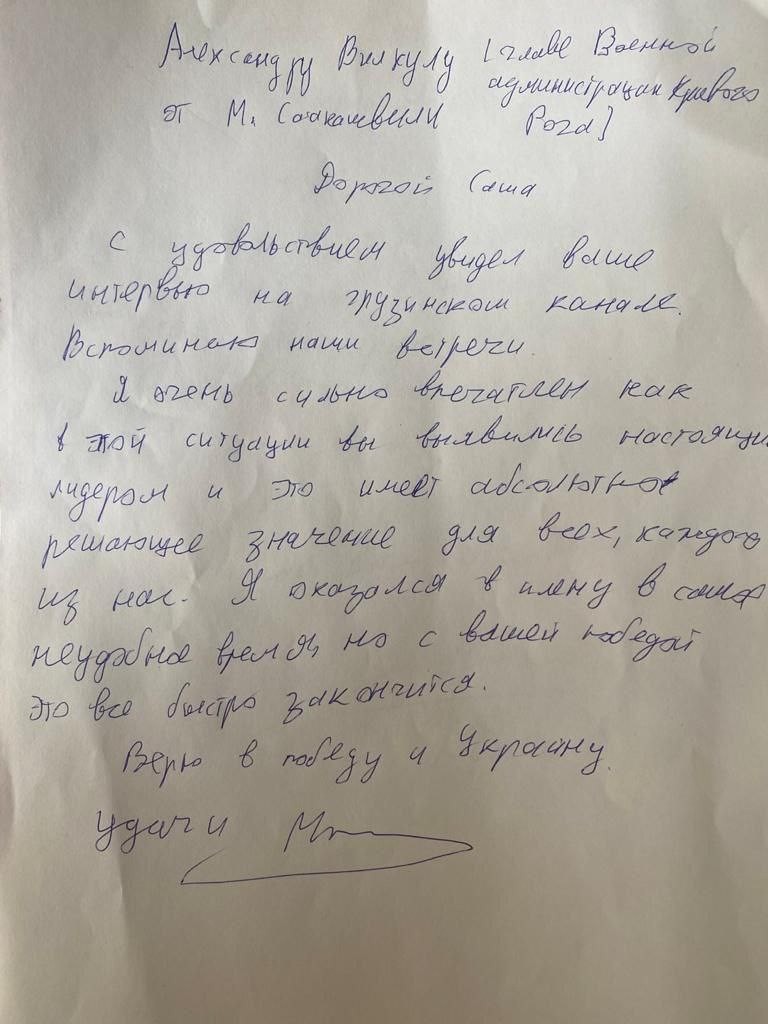 Александру Вилкулу [главе Военной
администрации Кривого
от М. Саакашвили Рога]
Дорогой Саша
С удовольствием увидел ваше
интервью на грузинском канале.
Вспоминаю наши встречи.
Я очень сильно впечатлен как
в этой ситуации вы выявились настоящим
лидером и это имеет абсолютное
решающее значение для всех, каждого
из нас. Я оказался в плену в самое
неудобное время, но с вашей победой
это все быстро закончится.
Верю в победу и Украину.
Удачи